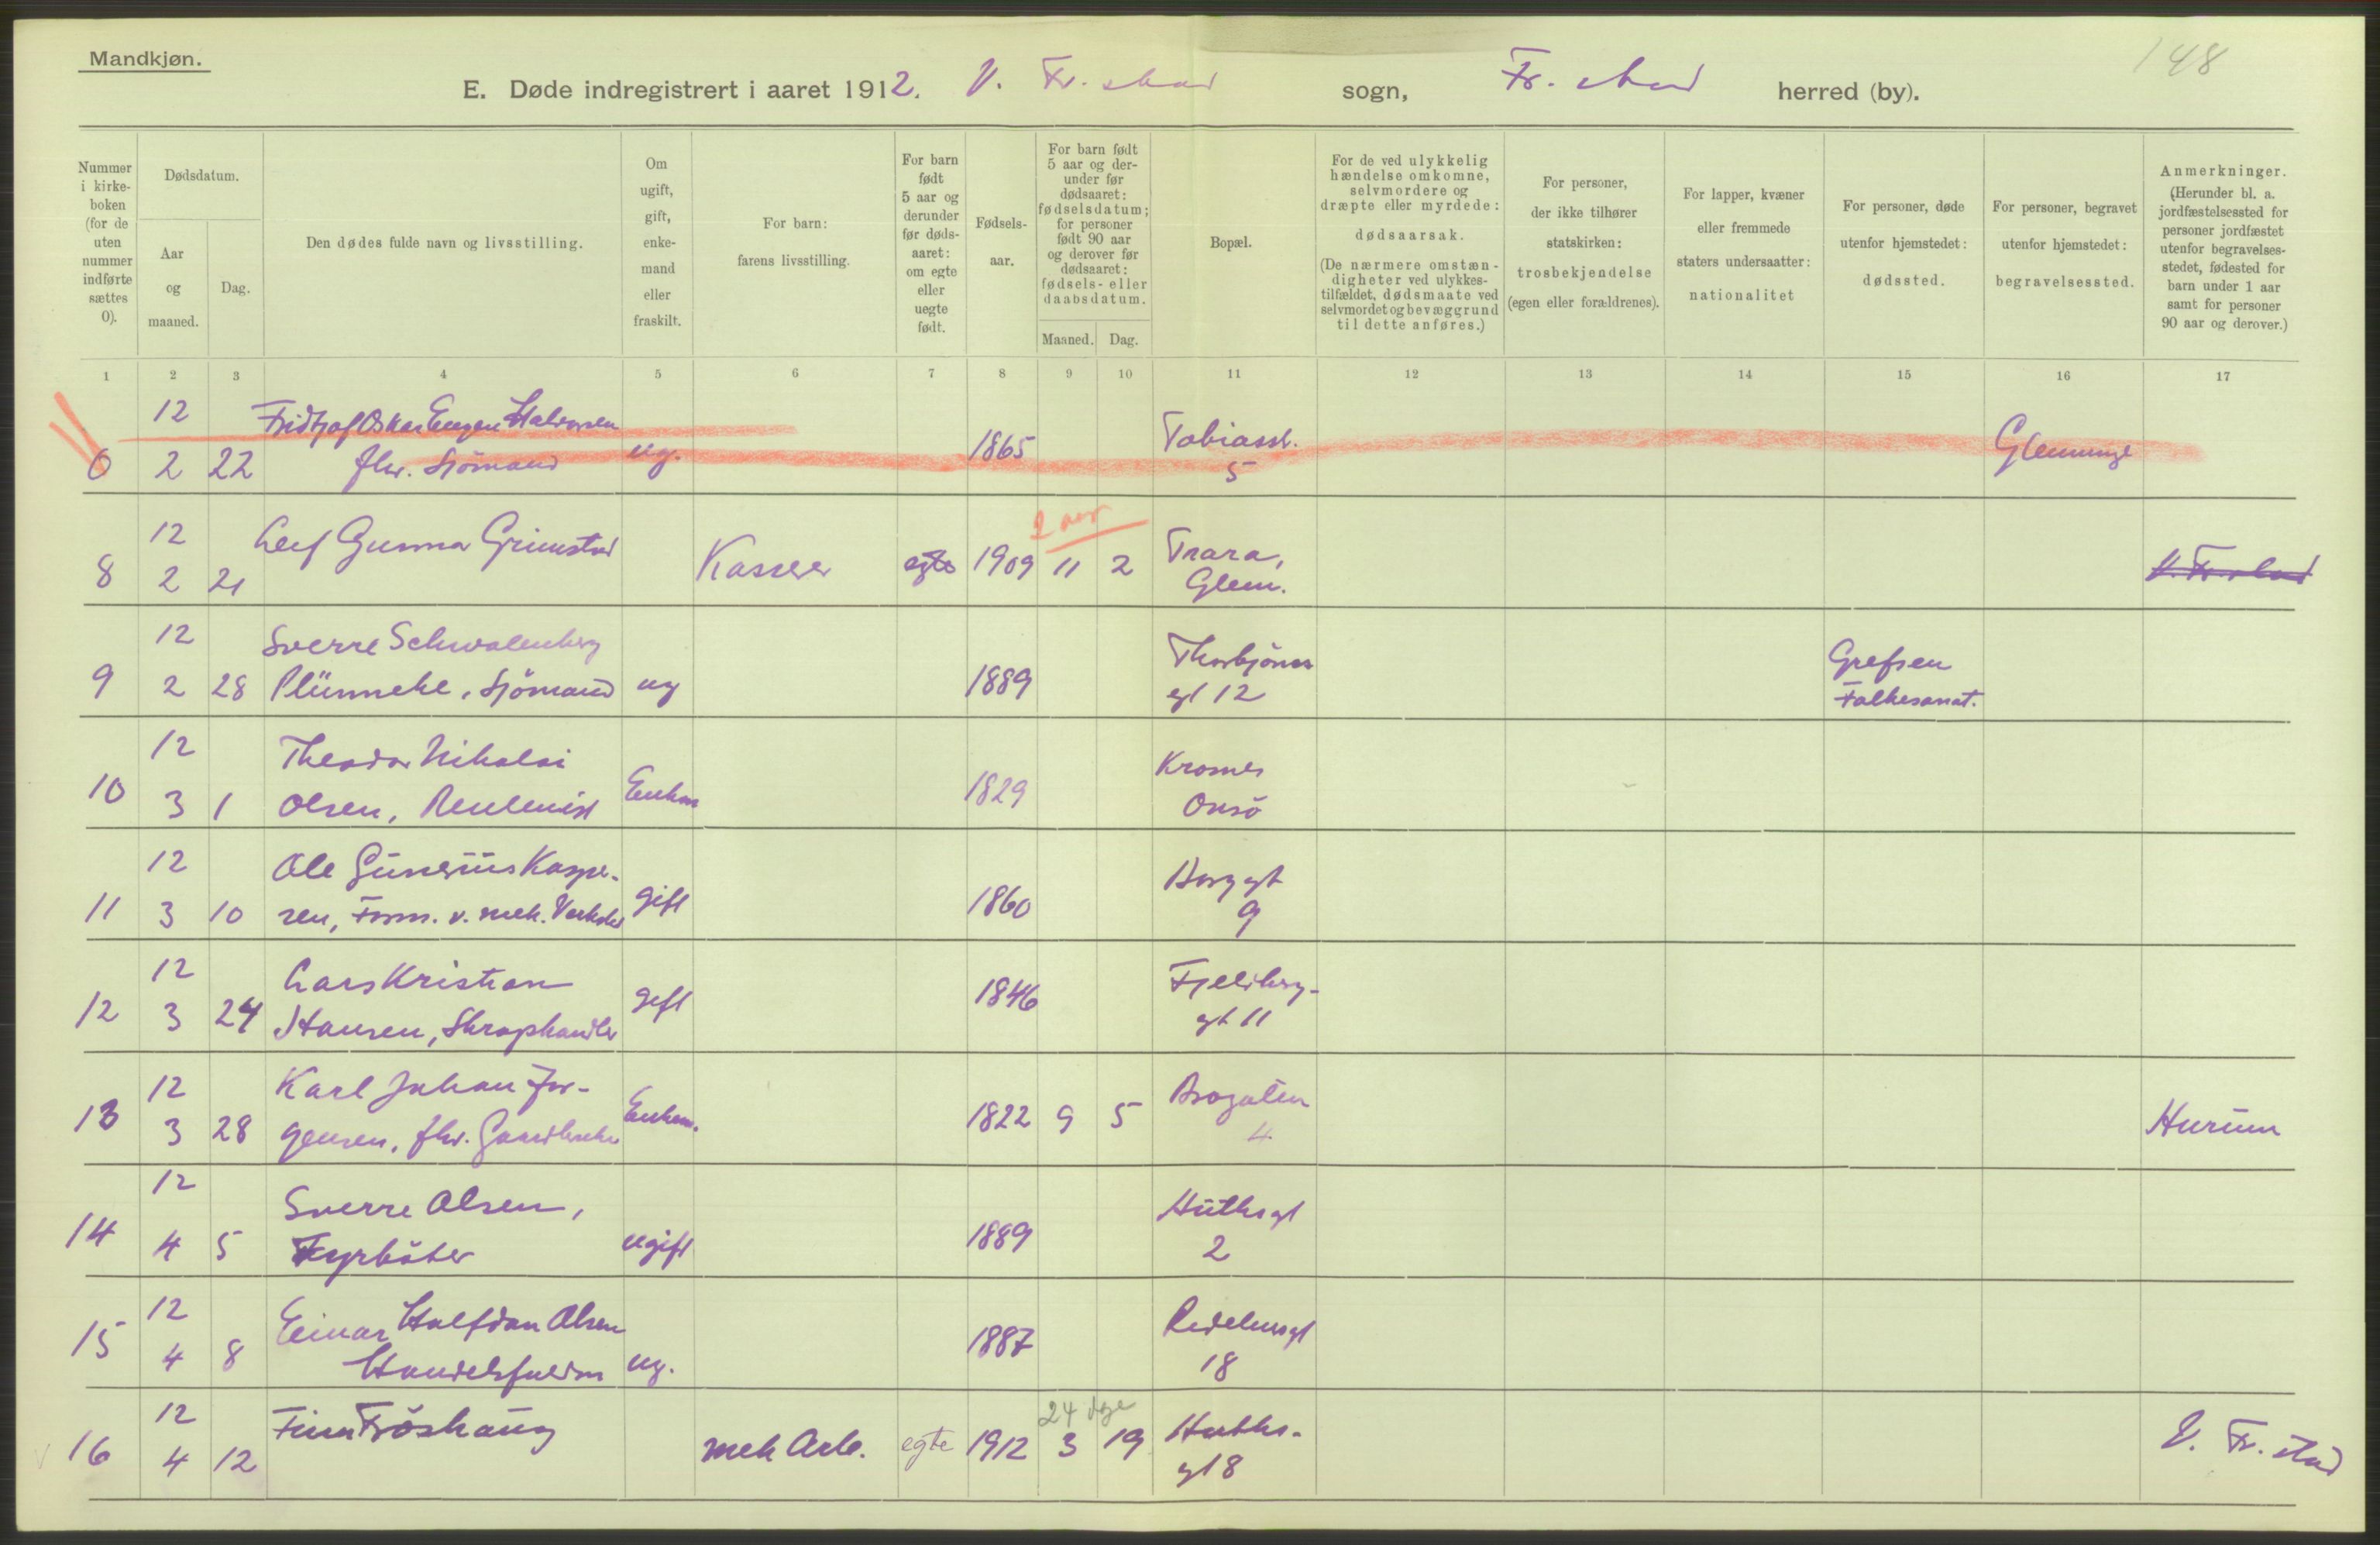 Mandkjøn.
148
E. Døde indregistrert i aaret 1912. V. Fr.stad sogn, Fr.stad herred (by).
Nummer i kirke- boken (for de uten nummer indførte sættes 0).
Dødsdatum.
Aar og maaned.
Dag.
Den dødes fulde navn og livsstilling.
Om ugift, gift, enke- mand eller fraskilt.
For barn: farens livsstilling.
For barn født 5 aar og derunder før døds- aaret: om egte eller uegte født.
Fødsels- aar.
For barn født 5 aar og der- under før dødsaaret: fødselsdatum; for personer født 90 aar og derover før dødsaaret: fødsels- eller daabsdatum.
Maaned. Dag.
Bopæl.
For de ved ulykkelig hændelse omkomne, selvmordere og dræpte eller myrdede: dødsaarsak.
(De nærmere omstæn- digheter ved ulykkes- tilfældet, dødsmaate ved selvmordet og bevæggrund til dette anføres.)
For personer, der ikke tilhører statskirken: trosbekjendelse (egen eller forældrenes).
For lapper, kvæner eller fremmede staters undersaatter: nationalitet
For personer, døde utenfor hjemstedet: dødssted.
For personer, begravet utenfor hjemstedet: begravelsessted.
Anmerkninger. (Herunder bl. a. jordfæstelsessted for personer jordfæstet utenfor begravelses- stedet, fødested for barn under 1 aar samt for personer 90 aar og derover.)
1 2 3 4 5 6 7 8 9 10 11 12 13 14 15 16 17
12 Fridtjof Oskar Eugen Halvorsen Tobiasst.
0 2 22 fhv. Sjömand ug. 1865 5 Glemminge
12 Leif Gunnar Grimstad 2 aar Trara,
8 2 21 Kasserer egte 1909 11 2 Glem. V. Fr.stad
12 Sverre Schwalenberg Thorbjörns Grefsen
9 2 28 Plünneke, Sjömand ug 1889 gt 12 Folkesanat.
12 Theodor Nikolai Enkem Kromes
10 3 1 Olsen, Rentenist 1829 Onsö
12 Ole Gunerius Kaspe- gift Borggt
11 3 10 rsen, Form. v. mek. Verksted 1860 9
12 Lars Kristian gift Fjeldberg-
12 3 24 Hansen, Skraphandler 1846 gt 11
12 Karl Johan Jör- Enkem. Brogaten
13 3 28 gensen, fhv. 1822 9 5 4 Hurum
12 Sverre Olsen, Huthsgt
14 4 5 Fyrböter ugift 1889 2
12 Einar Halfdan Olsen
15 4 8 Handelsfuldm ug. 1887 18
12 Finn Fröshaug 24 dge Huths-
16 4 12 mek Arb. egte 1912 3 19 gt 8 V. Fr.stad